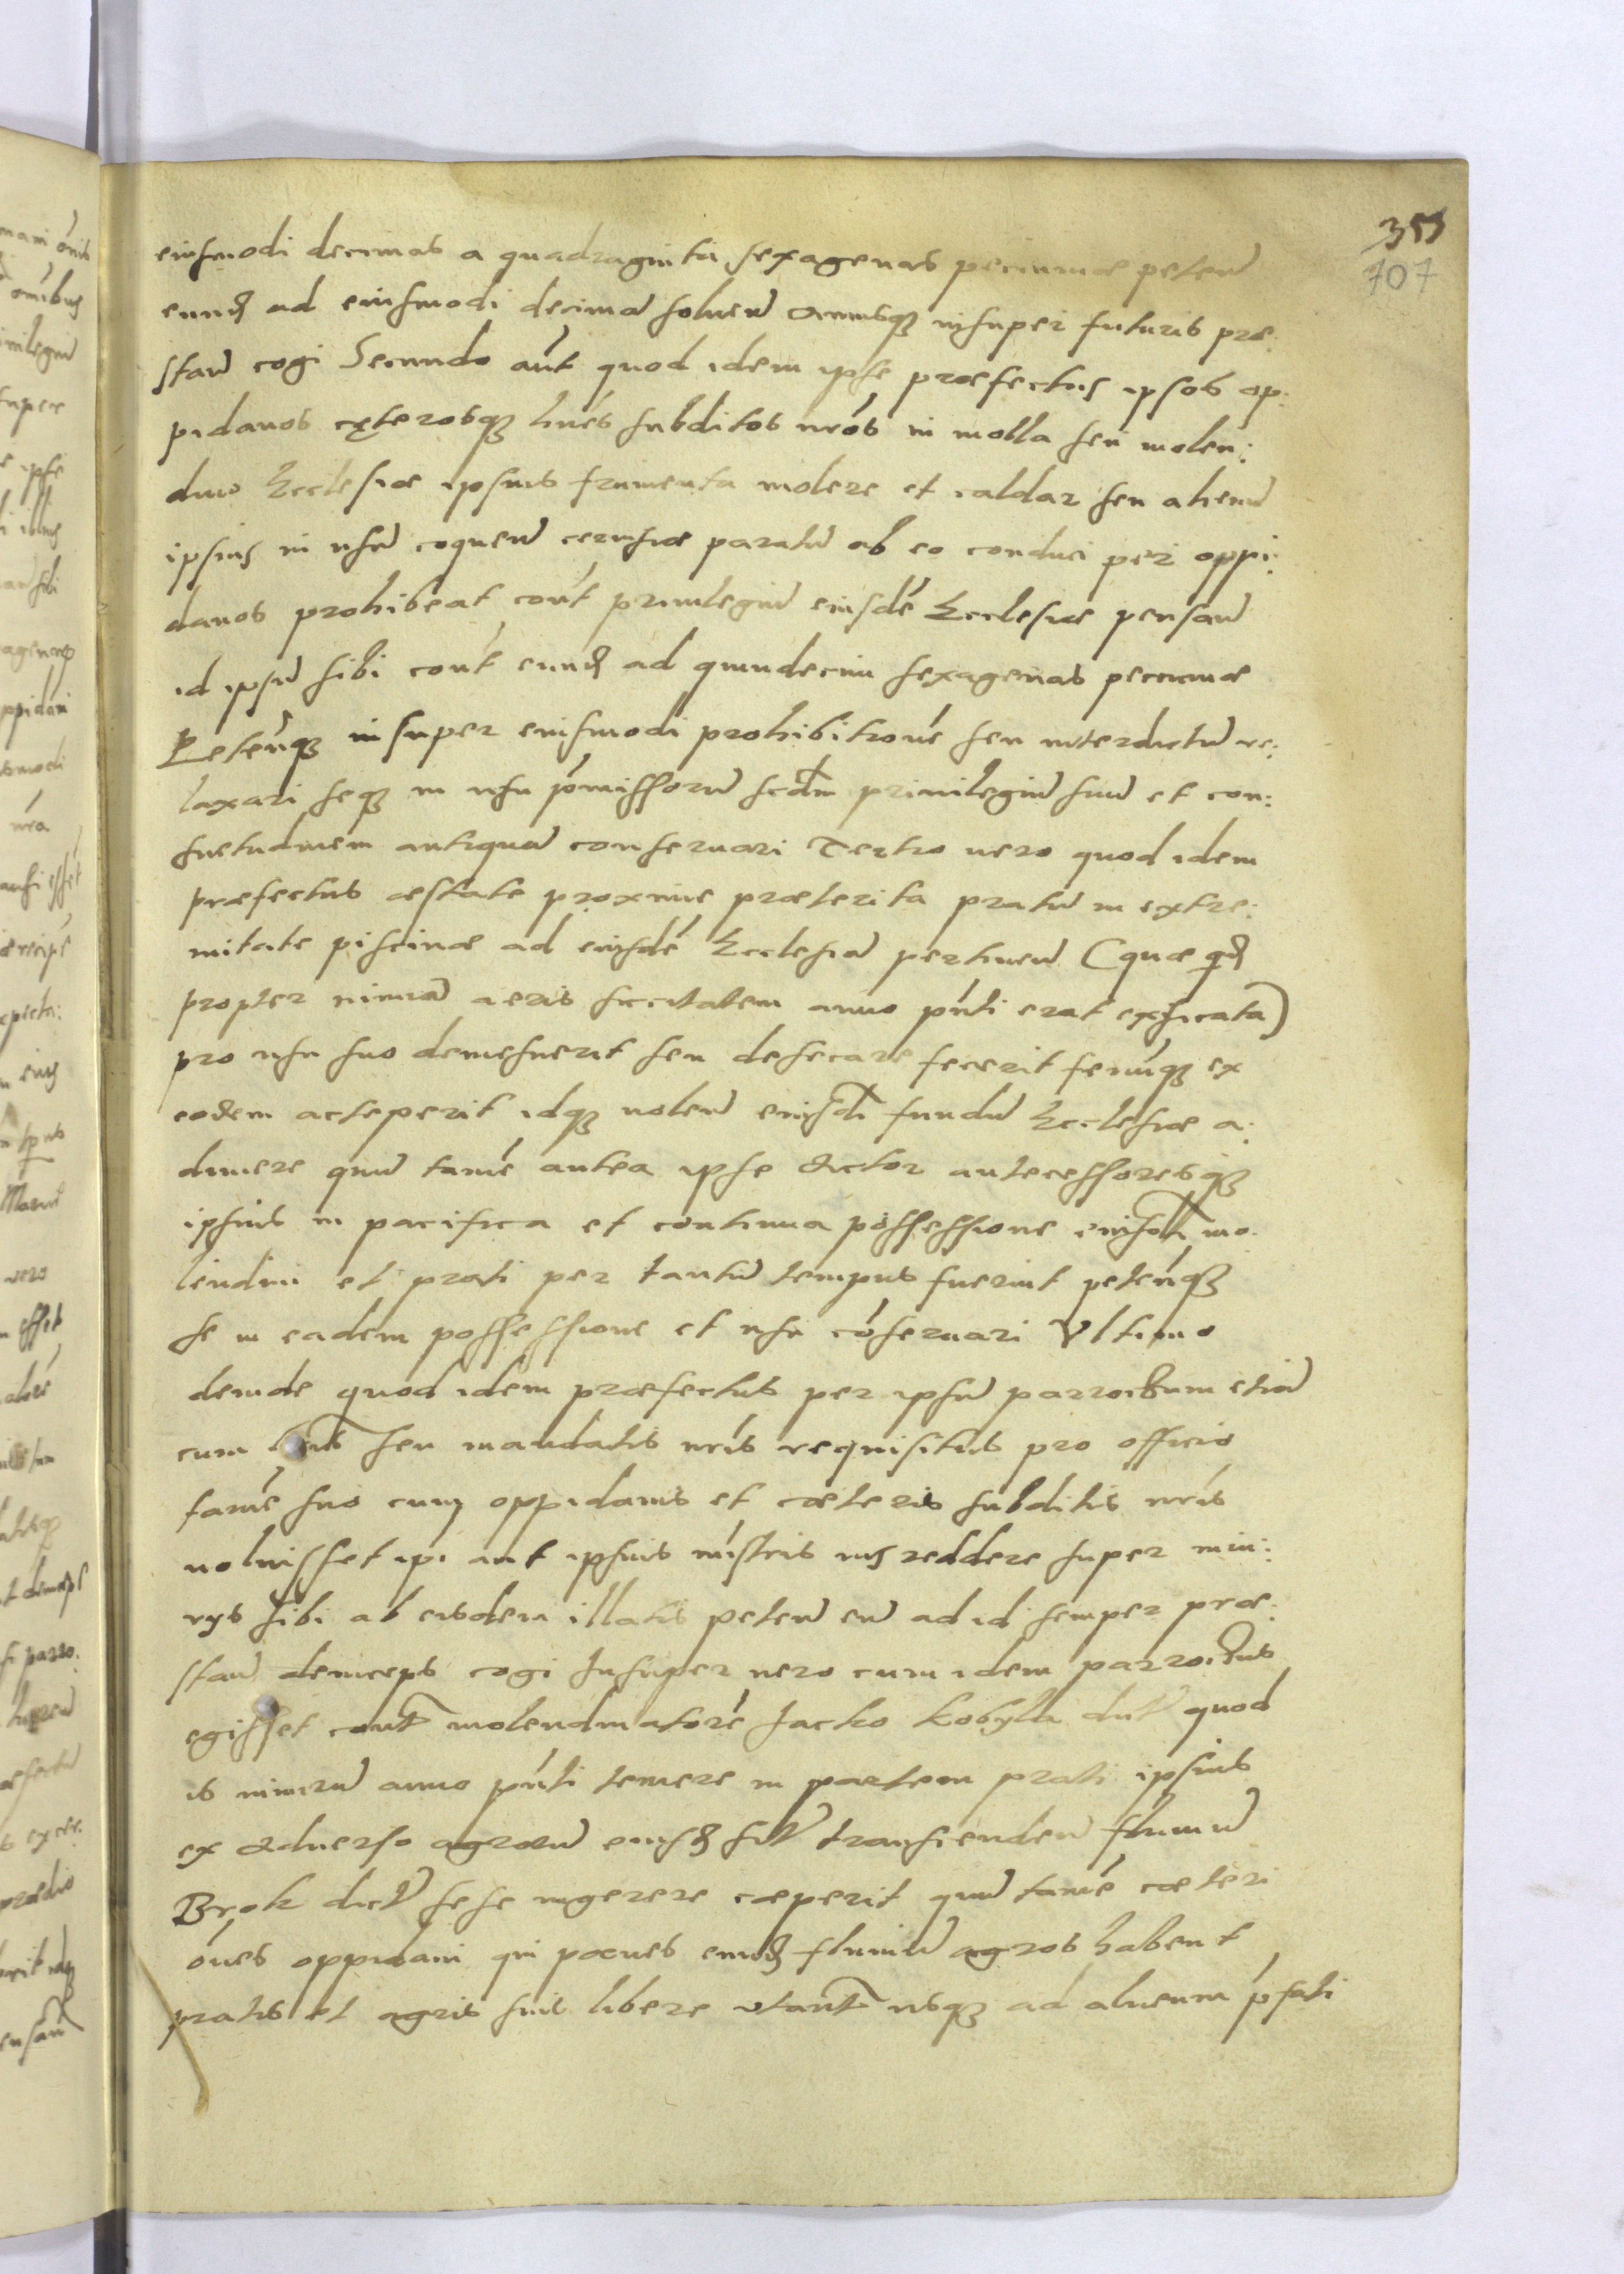 353
707
eiusmodi decimas a quadraginta sexagenas pecuniae peteñ
eundē ad eiusmodi decimā soluenđ Annisq3 insuper futuris præ:
stanđ cogi Secundo aūt quod idem ipse præfectus ipsos op:
pidanos cęterosq3 huēs subditos nrōs in molla seu molen:
dino Ecclesiæ ipsius frumenta molere et caldar seu ahenū
ipsius in usū coquenđ ceruisiæ paratū ab eo conduci per oppi:
danos prohibeat cont̄ priuilegiū eiusdē Ecclesiæ pensañ
id ipsū sibi cont̄ eundē ad quindecim sexagenas pecuniæ
Petēnq3 insuper eiusmodi prohibitionē seu interdictū re:
laxari seq3 in usu p̄missorū scd̄m priuilegiū suū et con:
suetudinem antiquā conseruari Tertio uero quod idem
præfectus æstate proxime præterita pratū in extre:
mitate piscinæ ad eiusdē Ecclesiā pertineñ (quæ qđ
propter nimiā aeris siccitatem anno pn̄ti erat exsicata)
pro usu suo demesuerit seu desecare fecerit fenūq3 ex
eodem acceperit idq3 uoleñ eiusdē fundū Ecclesiæ a:
dimere quū tamē antea ipse Actor antecessoresq3
ipsius in pacifica et continua possessione eiusdē mo
lendini et prati per tantū tempus fuerint petēnq3
se in eadem possessione et usu cōseruari Vltimo
deinde quod idem præfectus per ipsū parrochum etiā
cum lr̄is seu mandatis nrīs requisitus pro officio
tamē suo cum oppidanis et cæteris subditis nrīs
noluisset ipi aut ipsius mīstris ius reddere super iniu:
rys sibi ab eisdem illatis peteñ eū ad id semper præ:
stanđ deinceps cogi Insuper uero cum idem parrochus
egisset cont̄ molendinatorē Jacko Kobyla dict̄ quod
is nimirū anno pn̄ti temere in partem prati ipsius
ex Aduerso agrorū eiusđ sit̄ transeunden fluuiū
Brok dict̄ sese ingerere cæperit quū tamē cæteri
ōnes oppidani qui pænes eundē fluuiū agros habent
pratis et agris suis libere vtant̄ usq3 ad alueum p̄fati